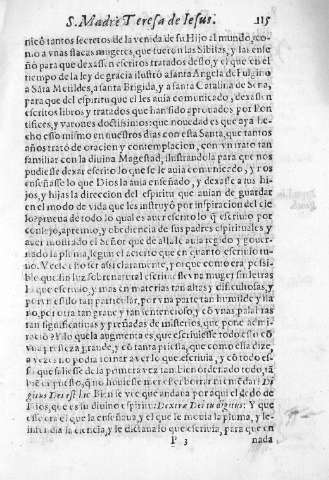 S. Madre Teresa de Iesus. 115
nicò tantos secretos de la venida de su Hijo al mundo, co-
mo a vnas flacas mugeres, que fueron las Sibilas, y las ense
ñò para que dexassen escritos tratados dello, y el que en el
tiempo de la ley de gracia ilustrò a santa Angela de Fulgino
a Sãta Metildes, a santa Brigida, y a santa Catalina de Sena,
para que del espiritu que el les auia comunicado, dexassen
escritos libros y tratados que han sido aprouados por Pon
tifices, y varones doctissimos: que nouedad es que aya he-
cho esso mismo en nuestros dias con esta Santa, que tantos
años tratò de oracion y contemplacion, con vn trato tan
familiar con la diuina Magestad, ilustrandola para que nos
pudiesse dexar escrito lo que se le auia comunicado, y nos
enseñasse lo que Dios la auia enseñado, y dexasse a sus hi-
jos, y hijas la direccion del espiritu que auian de guardar
en el modo de vida que les instruyò por inspiracion del cie
lo? prueua de todo lo qual es auer escrito lo q̃ escriuio por
consejo, apremio, y obediencia de sus padres espirituales, y
auer mostrado el Señor que de alla le auia regido y gouer-
nado la pluma, segun el acierto que en quanto escriuio tu-
uo. Y echase de ver assi claramente, porque como era possi-
ble que sin luz sobrenatural escriuiesse vna muger sin letras
lo que escriuio, y mas en materias tan altas y dificultosas, y
por vn estilo tan particular, por vna parte tan humilde y lla
no, por otra tan graue y tan sentencioso, y cõ vnas palabras
tan significatiuas y preñadas de misterios, que pone admi-
raciõ? Y lo que la augmenta es, que escriuiesse todo esto cõ
vna presteza grande, y cõ tanta priessa, que como ella dize,
a vezes no podia tornar a ver lo que escriuia, y cõ todo es-
so que saliesse de la primera vez tan bien ordenado todo, tã
biẽ cõpuesto, q̃ no huuiesse menester borrar ni emendar? Di
gitus Dei est hic. Bien se vee que andaua por aqui el dedo de
Dios, que es su diuino espiritu: Dextræ Dei tu digitus: Y que
esse era el que la enseñaua y el que le mouia la pluma, y le
infundia la ciencia, y le dictaua lo que escriuia, para que en
P 3 nada